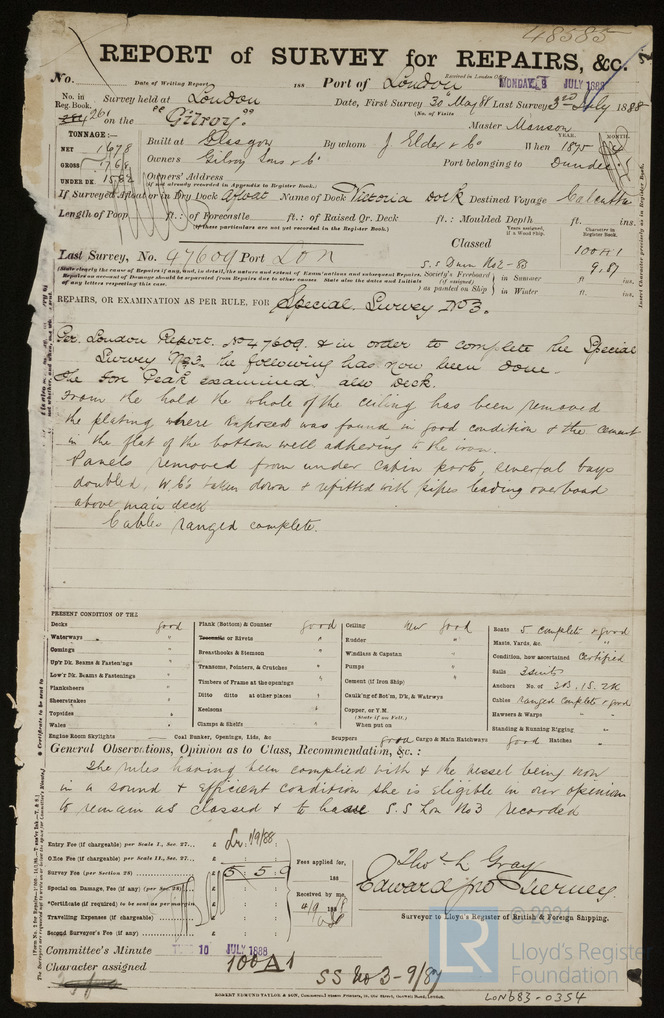 48585
REPORT of SURVEY for REPAIRS, &c.
No. Date of Writing Report 188 Port of London Received in London Office MONDAY 9 JULY 1888
No. in Reg. Book. Survey held at London Date, First Survey 30 May 88 Last Survey 3rd July 1888
(No. of Visits
261 on the "Gilroy." Master Manson
TONNAGE:— Built at Glasgow By whom J Elder & Co When 1875 YEAR. MONTH.
NET 1678
GROSS 1768 Owners Gilroy Sons & Co Port belonging to Dundee
UNDER DK. 1582 Owners' Address
(if not already recorded in Appendix to Register Book.)
If Surveyed Afloat or in Dry Dock Afloat Name of Dock Victoria Dock Destined Voyage Calcutta
Length of Poop ft.: of Forecastle ft.: of Raised Qr. Deck ft.: Moulded Depth ft. ins.
(if these particulars are not yet recorded in the Register Book.)
Years assigned, if a Wood Ship. Character in Register Book.
Last Survey, No. 47609 Port Lon Classed 100A1
9.87
Society's Freeboard (if assigned) as painted on Ship in Summer ft. ins.
in Winter ft. ins.
REPAIRS, OR EXAMINATION AS PER RULE, FOR Special Survey No3.
Per London Report No 47609. & in order to complete the Special
Survey No3. the following has now been done.
The Fore Peak examined also Deck.
From the hold the whole of the ceiling has been removed
the plating where exposed was found in good condition & the cement
in the flat of the bottom well adhering to the iron.
Panels removed from under cabin ports, several bays
doubled, W.C's taken down & refitted with pipes leading overboard
above main deck
Cables ranged complete.
PRESENT CONDITION OF THE
Decks good
Waterways "
Comings "
Upr Dk. Beams & Fastenings "
Low'r Dk. Beams & Fastenings "
Planksheers "
Sheerstrakes "
Topsides "
Wales "
Engine Room Skylights
Plank (Bottom) & Counter good
Treenails or Rivets "
Breasthooks & Stemson "
Transoms, Pointers, & Crutches "
Timbers of Frame at the openings "
Ditto ditto at other places "
Keelsons "
Clamps & Shelfs "
Coal Bunker, Openings, Lids, &c
Ceiling New good
Rudder "
Windlass & Capstan "
Pumps "
Cement (if Iron Ship) "
Caulk'ng of Bot'm, D'k, & Watrwys "
Copper, or Y.M.
(State if on Felt.)
When put on
Scuppers good Cargo & Main Hatchways good Hatches "
Boats 5 complete & good
Masts, Yards, &c. "
Condition, how ascertained Certified
Sails 3 suits
Anchors No. of 3B. 1S. 2K
Cables Ranged complete & good
Hawsers & Warps "
Standing & Running Rigging "
General Observations, Opinion as to Class, Recommendation, &c.:
The rules having been complied with & the vessel being now
in a sound & efficient condition she is eligible in our opinion
to remain as classed & to have S.S Lon No3 recorded
Entry Fee (if chargeable) per Scale I., Sec. 27.. £
O.Zee Fee (if chargeable) per Scale II., Sec. 27.. £
Survey Fee (per Section 28) £ 5 : 5 : 0
Special on Damage, Fee (if any) (per Sec. 28) £
*Certificate (if required) to be sent as per margin
Travelling Expenses (if chargeable) £
Second Surveyor's Fee (if any) £
Fees applied for, 188
Received by me,
Thos. L. Gray
Edward Jno Tierney.
Surveyor to Lloyd's Register of British & Foreign Shipping.
Committee's Minute TUES 10 JULY 1888
Character assigned 100A1
SS No 3-9/87
ROBERT EDMUND TAYLOR & SON
LON683-0354
© 2021
LR
Lloyd's Register
Foundation